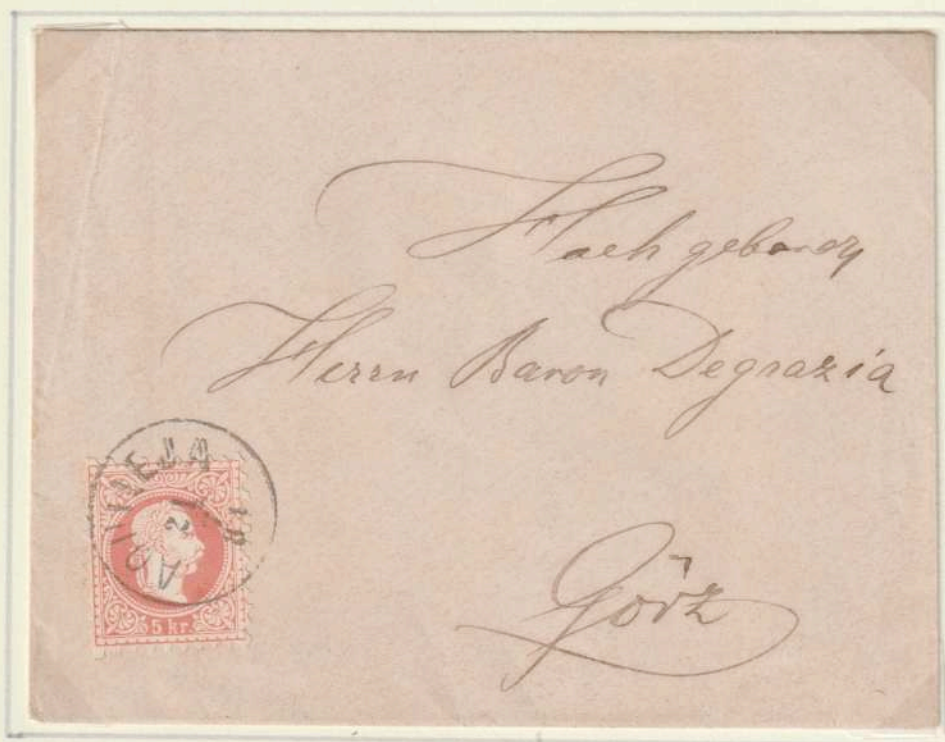 Hochgeboren
Herrn Baron Degrazia
Görz
AQUILEJA
5 kr.